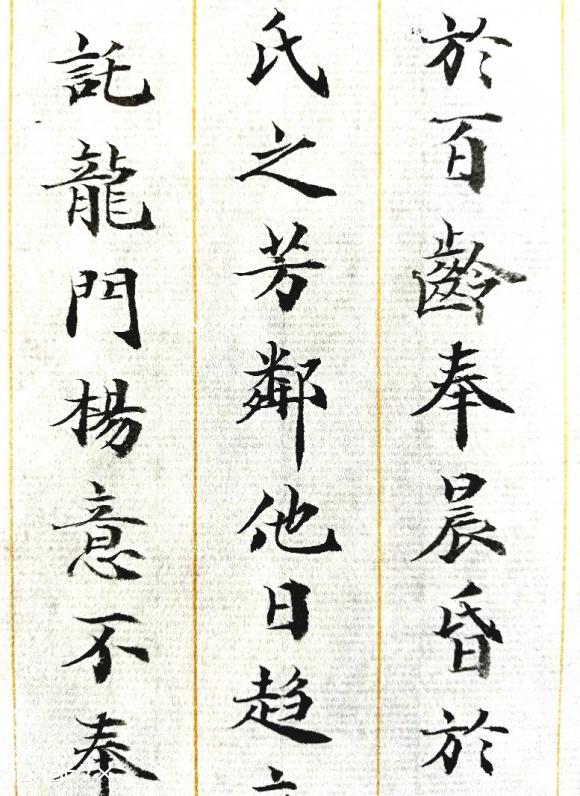 於百齡奉晨昏於
氏之芳鄰他日趋
託龍門楊意不奉